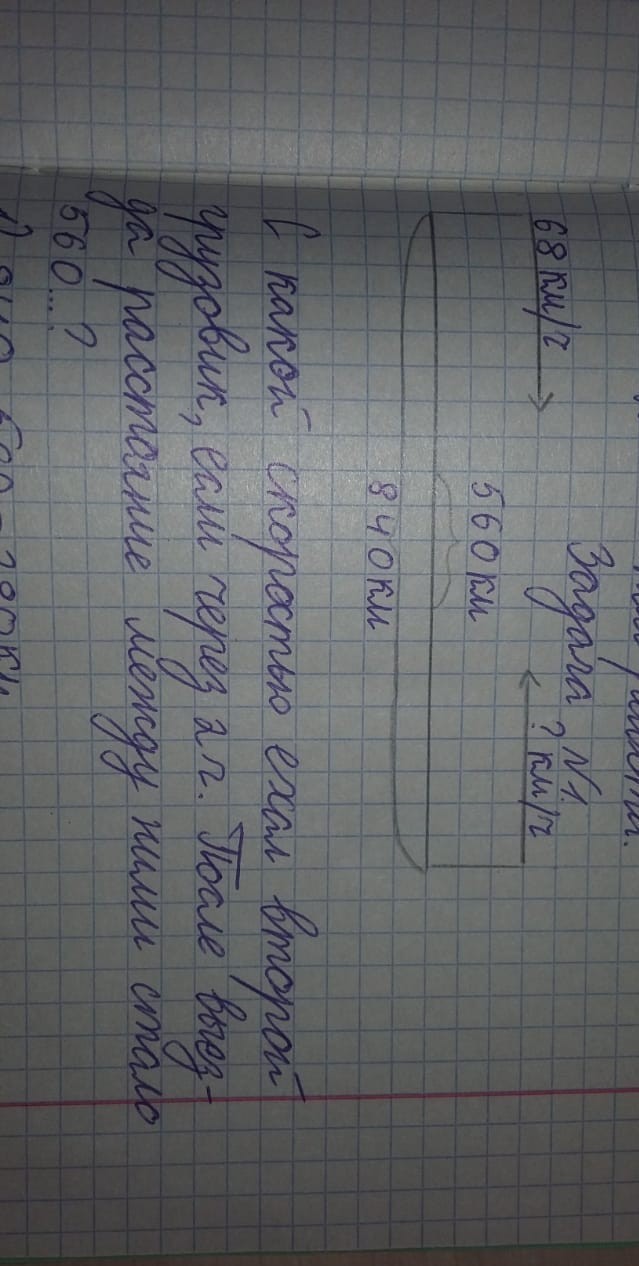 Задача №1
68 км/ч ? км/ч
560 км
840 км
С какой скоростью ехал второй
грузовик, если через 2 ч. После выез-
да расстояние между ними стало
560...?